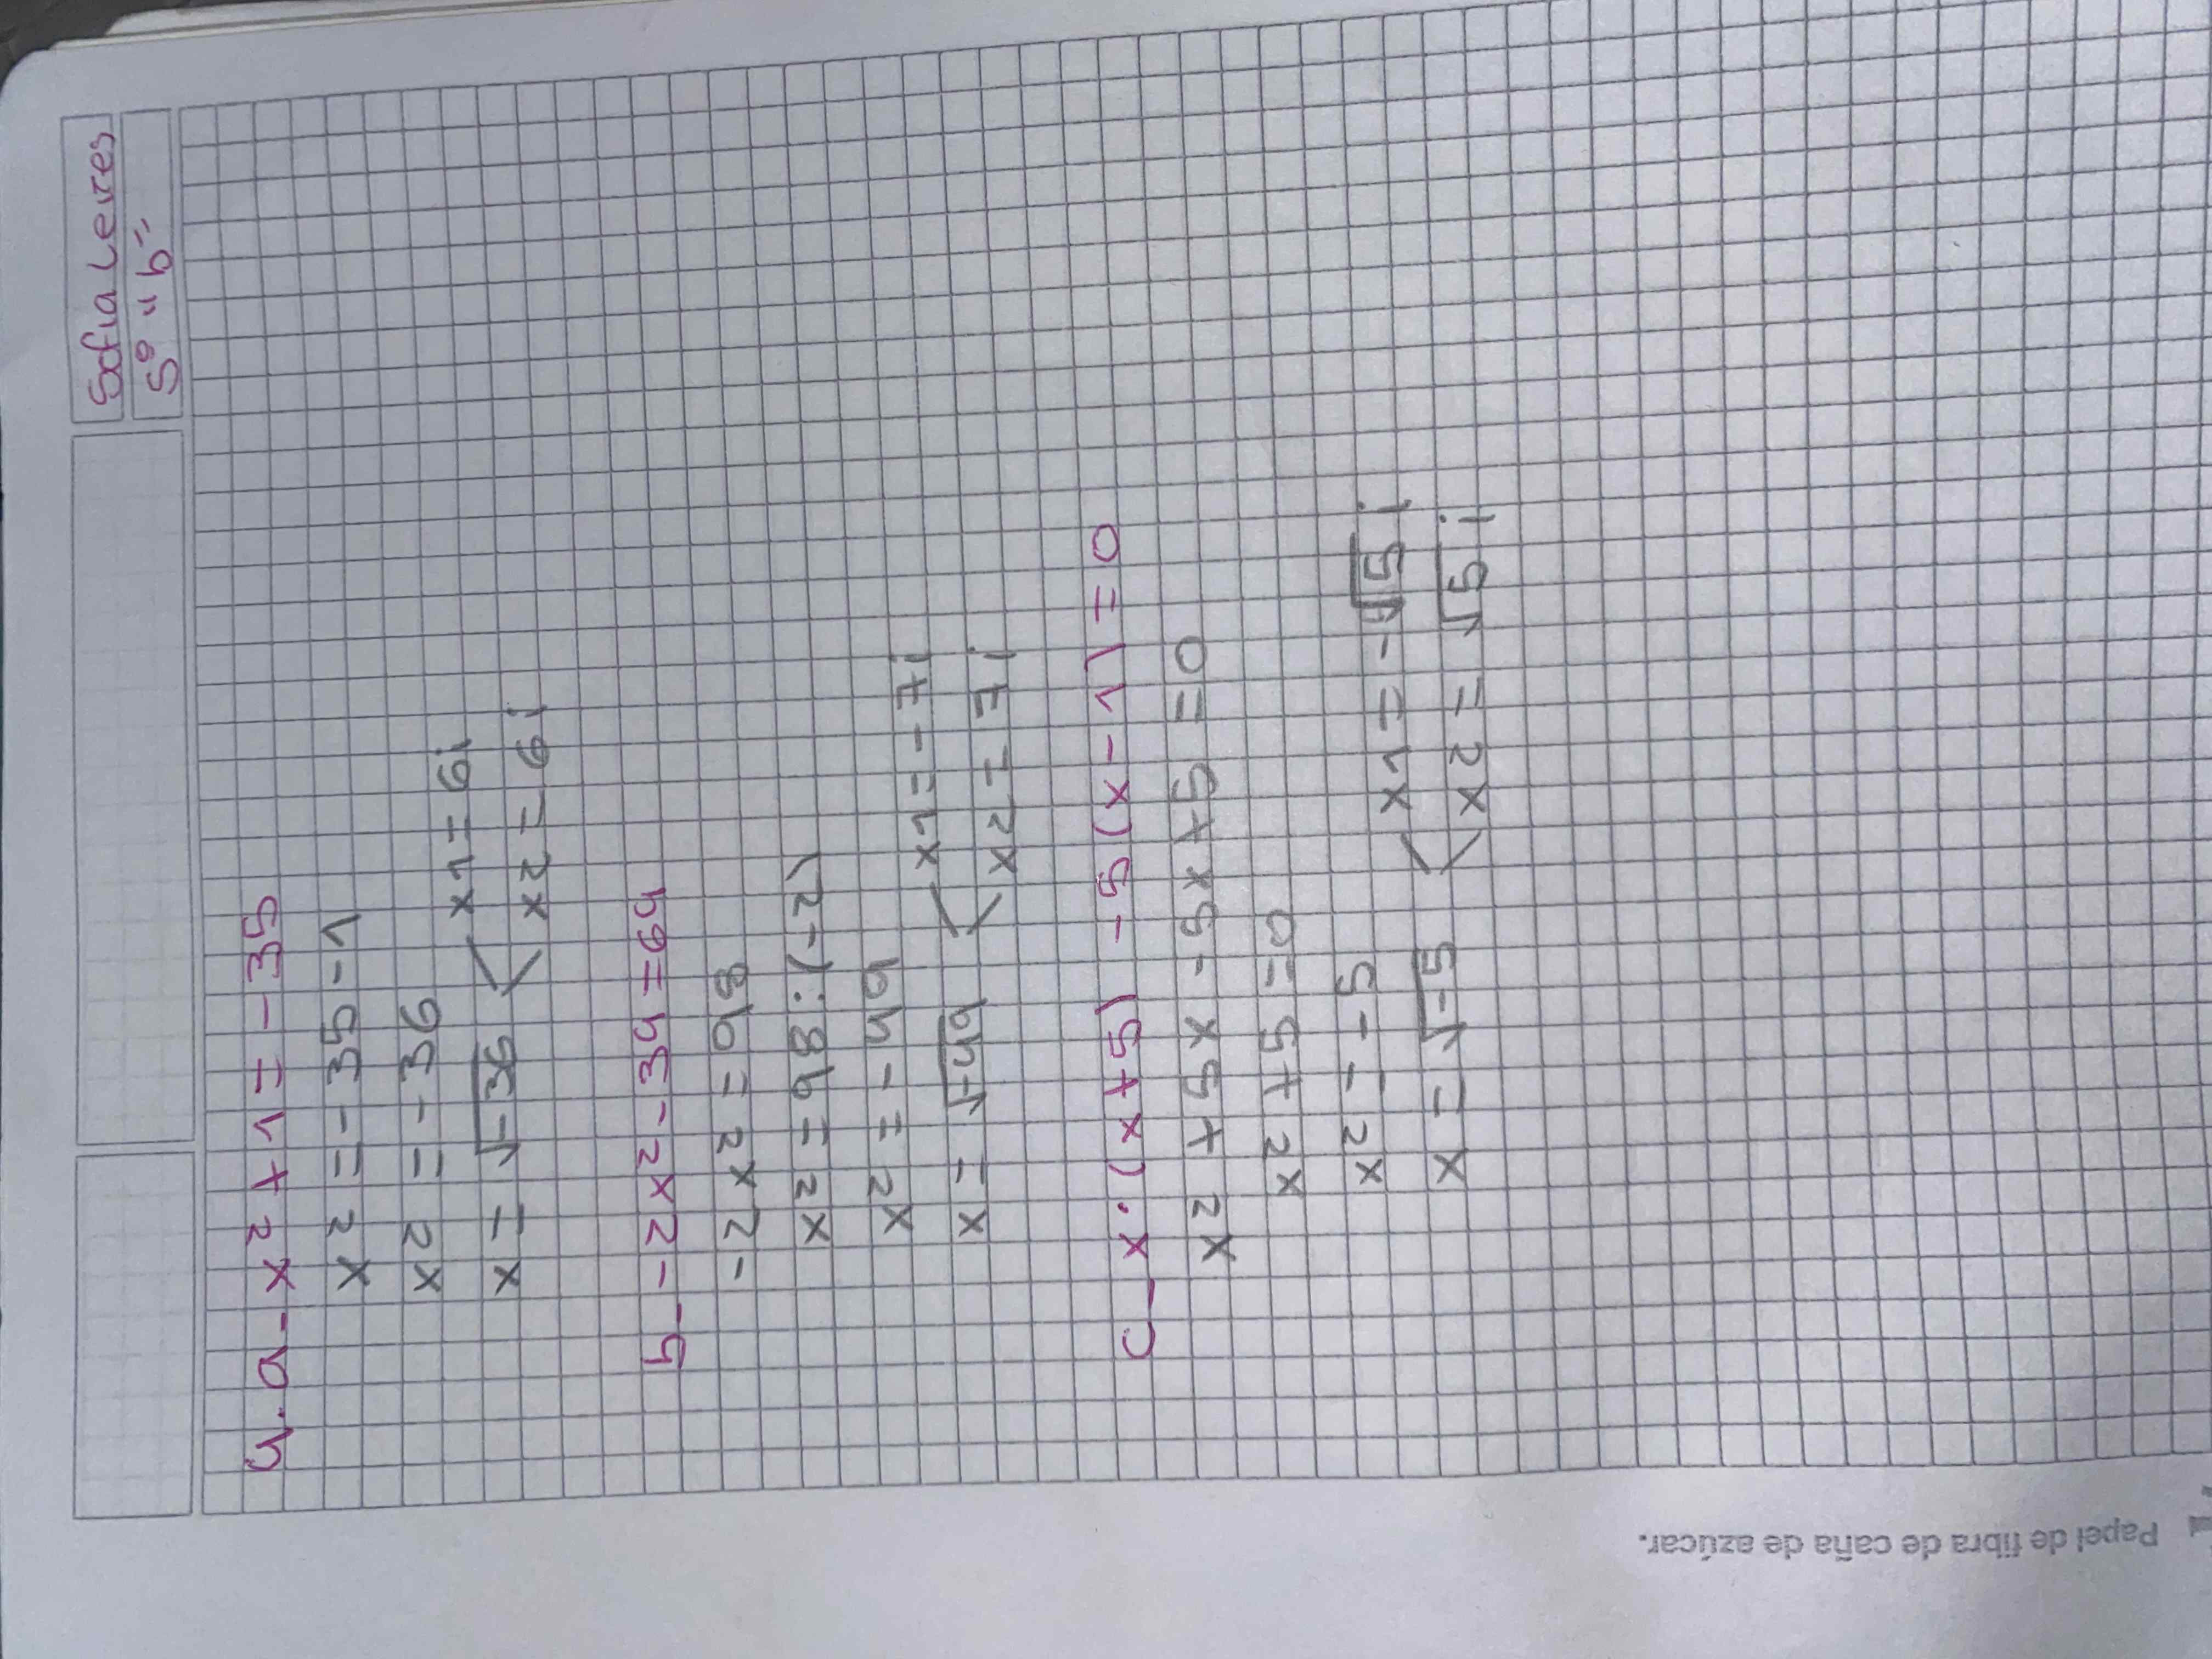 Sofia Leires
5° "b"
4. a- x² + 1 = - 35
x² = - 35 - 1
x² = - 36
x = √-36 < x1 = 6i
x2 = 6i
b- - 2x² - 34 = 64
- 2x² = 98
x² = 98 : (-2)
x² = - 49
x = √-49 < x1 = - 7i
x2 = 7i
c- x . (x + 5) - 5 (x - 1) = 0
x² + 5x - 5x + 5 = 0
x² + 5 = 0
x² = - 5
x = √-5 < x1 = - √5 i
x2 = √5 i
Papel de fibra de caña de azúcar.